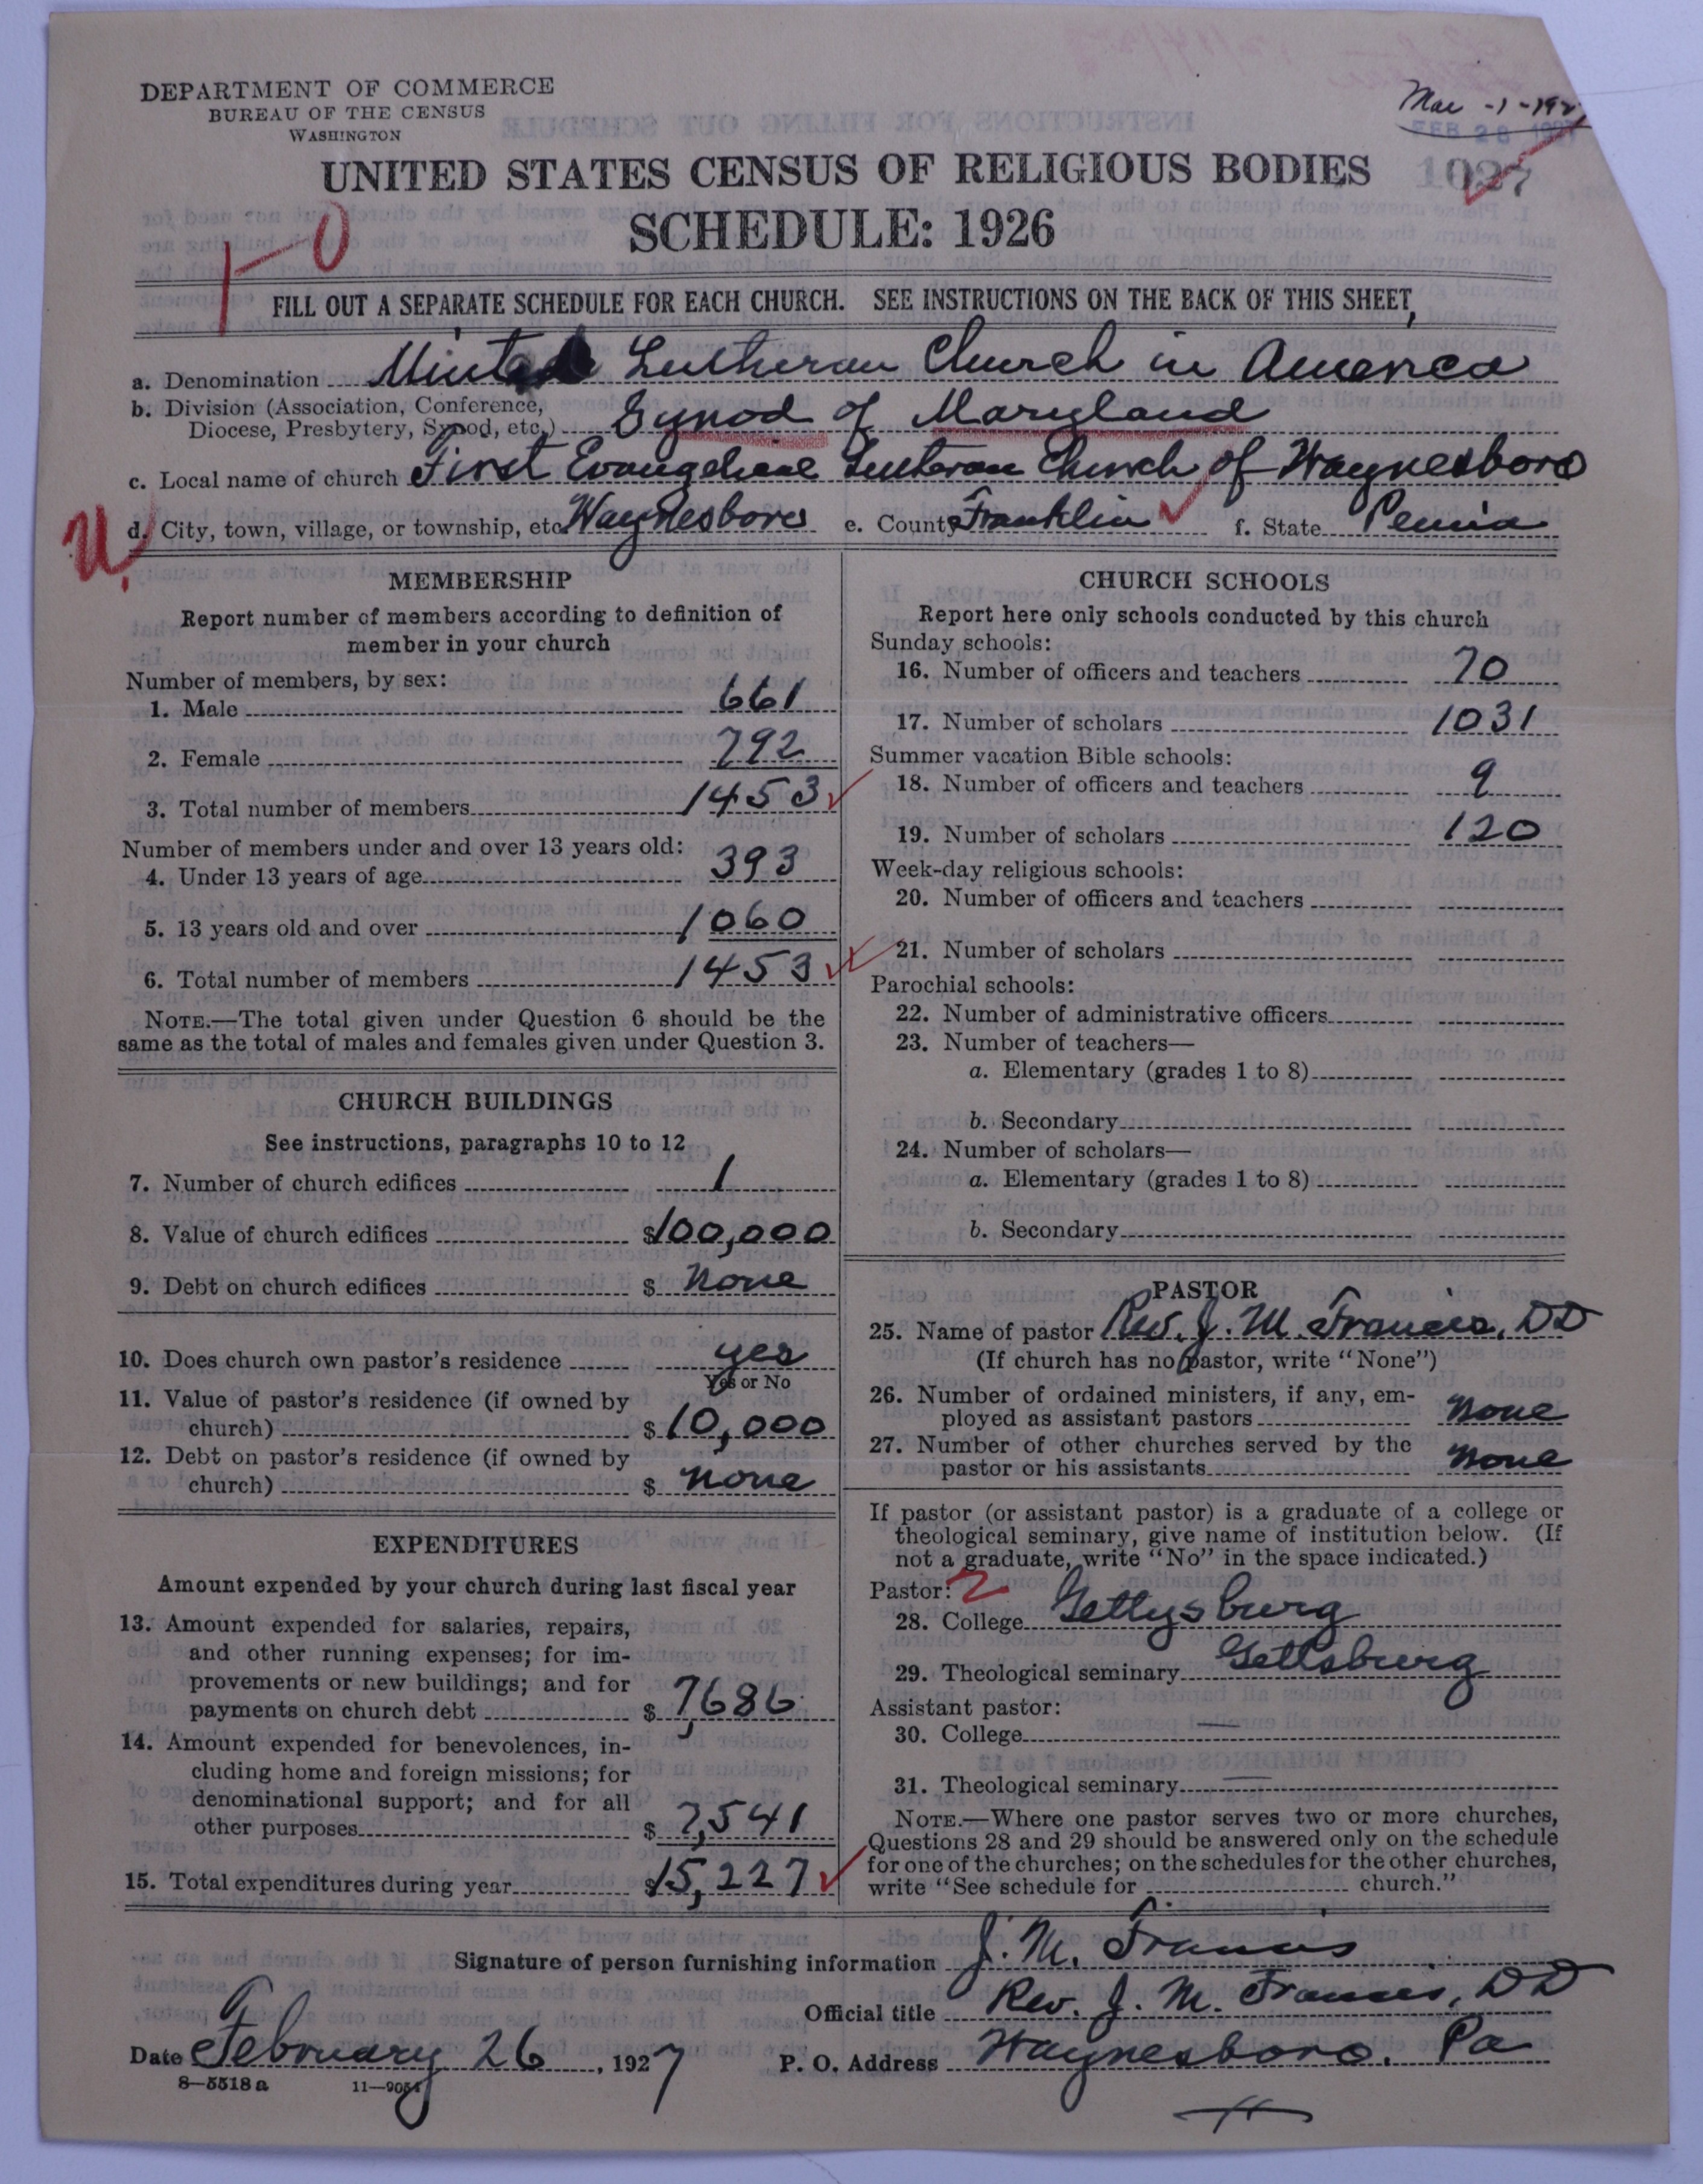 DEPARTMENT OF COMMERCE
BUREAU OF THE CENSUS
WASHINGTON
Mar -1-192
FEB 28 1927
UNITED STATES CENSUS OF RELIGIOUS BODIES
1027
SCHEDULE: 1926
1-0
FILL OUT A SEPARATE SCHEDULE FOR EACH CHURCH. SEE INSTRUCTIONS ON THE BACK OF THIS SHEET
a. Denomination United Lutheran Church in America
b. Division (Association, Conference,
Diocese, Presbytery, Synod, etc.) Synod of Maryland
c. Local name of church First Evangelical Lutheran Church of Waynesboro
U. d. City, town, village, or township, etc. Waynesboro e. County Franklin f. State Penna
MEMBERSHIP
Report number of members according to definition of
member in your church
Number of members, by sex:
1. Male 661
2. Female 792
3. Total number of members 1453
Number of members under and over 13 years old:
4. Under 13 years of age 393
5. 13 years old and over 1060
6. Total number of members 1453
NOTE.—The total given under Question 6 should be the
same as the total of males and females given under Question 3.
CHURCH BUILDINGS
See instructions, paragraphs 10 to 12
7. Number of church edifices 1
8. Value of church edifices $100,000
9. Debt on church edifices $ none
10. Does church own pastor's residence yes
Yes or No
11. Value of pastor's residence (if owned by
church) $10,000
12. Debt on pastor's residence (if owned by
church) $ none
EXPENDITURES
Amount expended by your church during last fiscal year
13. Amount expended for salaries, repairs,
and other running expenses; for im-
provements or new buildings; and for
payments on church debt $ 7,686
14. Amount expended for benevolences, in-
cluding home and foreign missions; for
denominational support; and for all
other purposes $ 7,541
15. Total expenditures during year $15,227
CHURCH SCHOOLS
Report here only schools conducted by this church
Sunday schools:
16. Number of officers and teachers 70
17. Number of scholars 1031
Summer vacation Bible schools:
18. Number of officers and teachers 9
19. Number of scholars 120
Week-day religious schools:
20. Number of officers and teachers
21. Number of scholars
Parochial schools:
22. Number of administrative officers
23. Number of teachers—
a. Elementary (grades 1 to 8)
b. Secondary
24. Number of scholars—
a. Elementary (grades 1 to 8)
b. Secondary
PASTOR
25. Name of pastor Rev. J. M. Francis, DD
(If church has no pastor, write "None")
26. Number of ordained ministers, if any, em-
ployed as assistant pastors none
27. Number of other churches served by the
pastor or his assistants none
If pastor (or assistant pastor) is a graduate of a college or
theological seminary, give name of institution below. (If
not a graduate, write "No" in the space indicated.)
Pastor: 2
28. College Gettysburg
29. Theological seminary Gettsburg
Assistant pastor:
30. College —
31. Theological seminary —
NOTE.—Where one pastor serves two or more churches,
Questions 28 and 29 should be answered only on the schedule
for one of the churches; on the schedules for the other churches,
write "See schedule for church."
Signature of person furnishing information J. M. Francis
Official title Rev. J. M. Francis, DD
Date February 26, 1927 P. O. Address Waynesboro, Pa
8-5518 a 11-9051